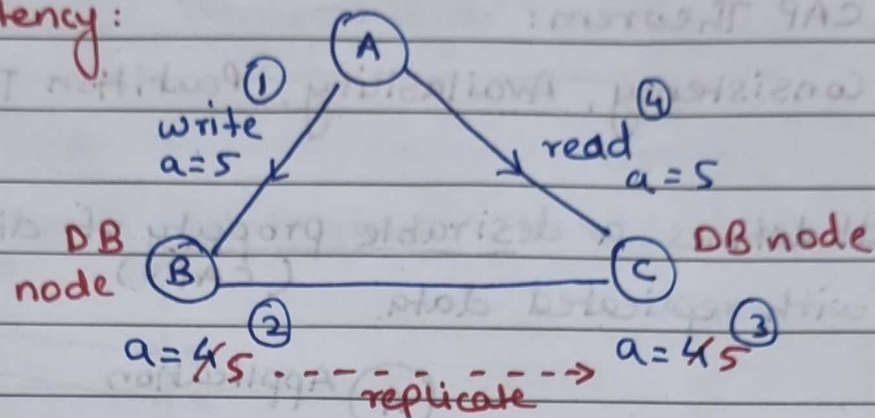 tency:
A
① write
a=5
④ read
a=5
DB node
B
C
DB node
a=4 5 ②
a=4 5 ③
replicate